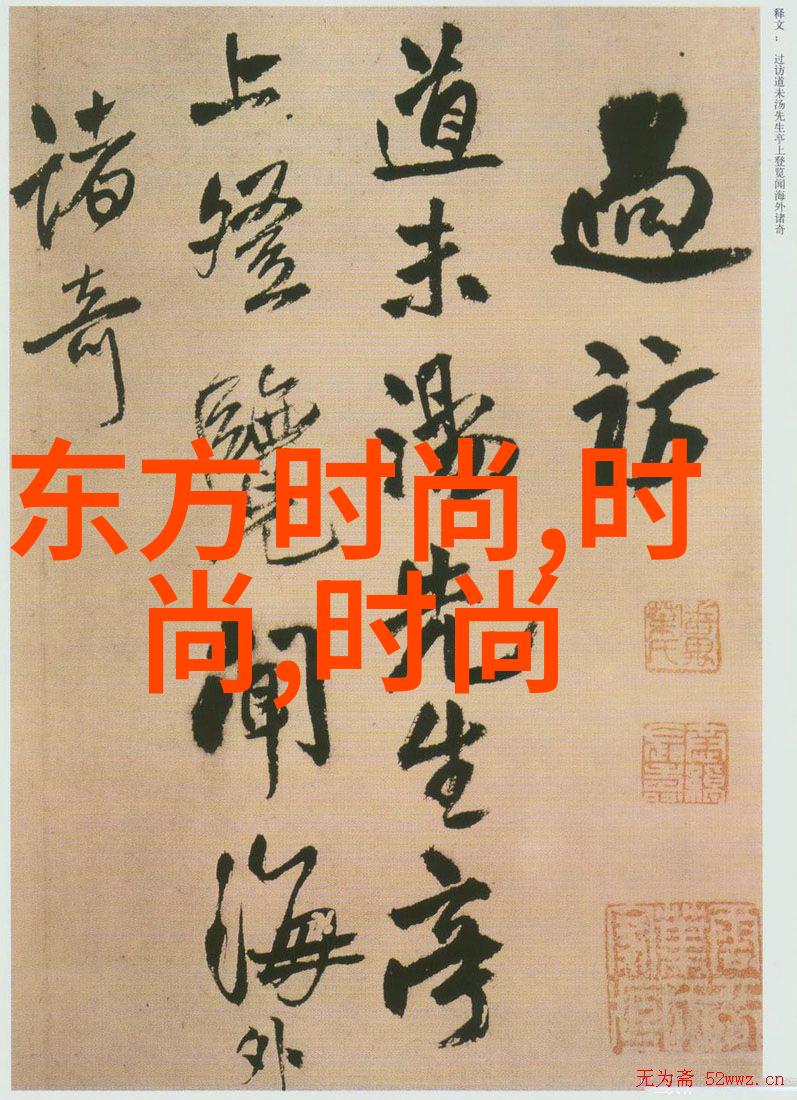 释文： 过访道未汤先生亭上登览闻海外诸奇
過訪
道未湯先生亭
上登覽聞海外
诸奇
东方时尚,时
尚,时尚
无为斋 52wwz.cn